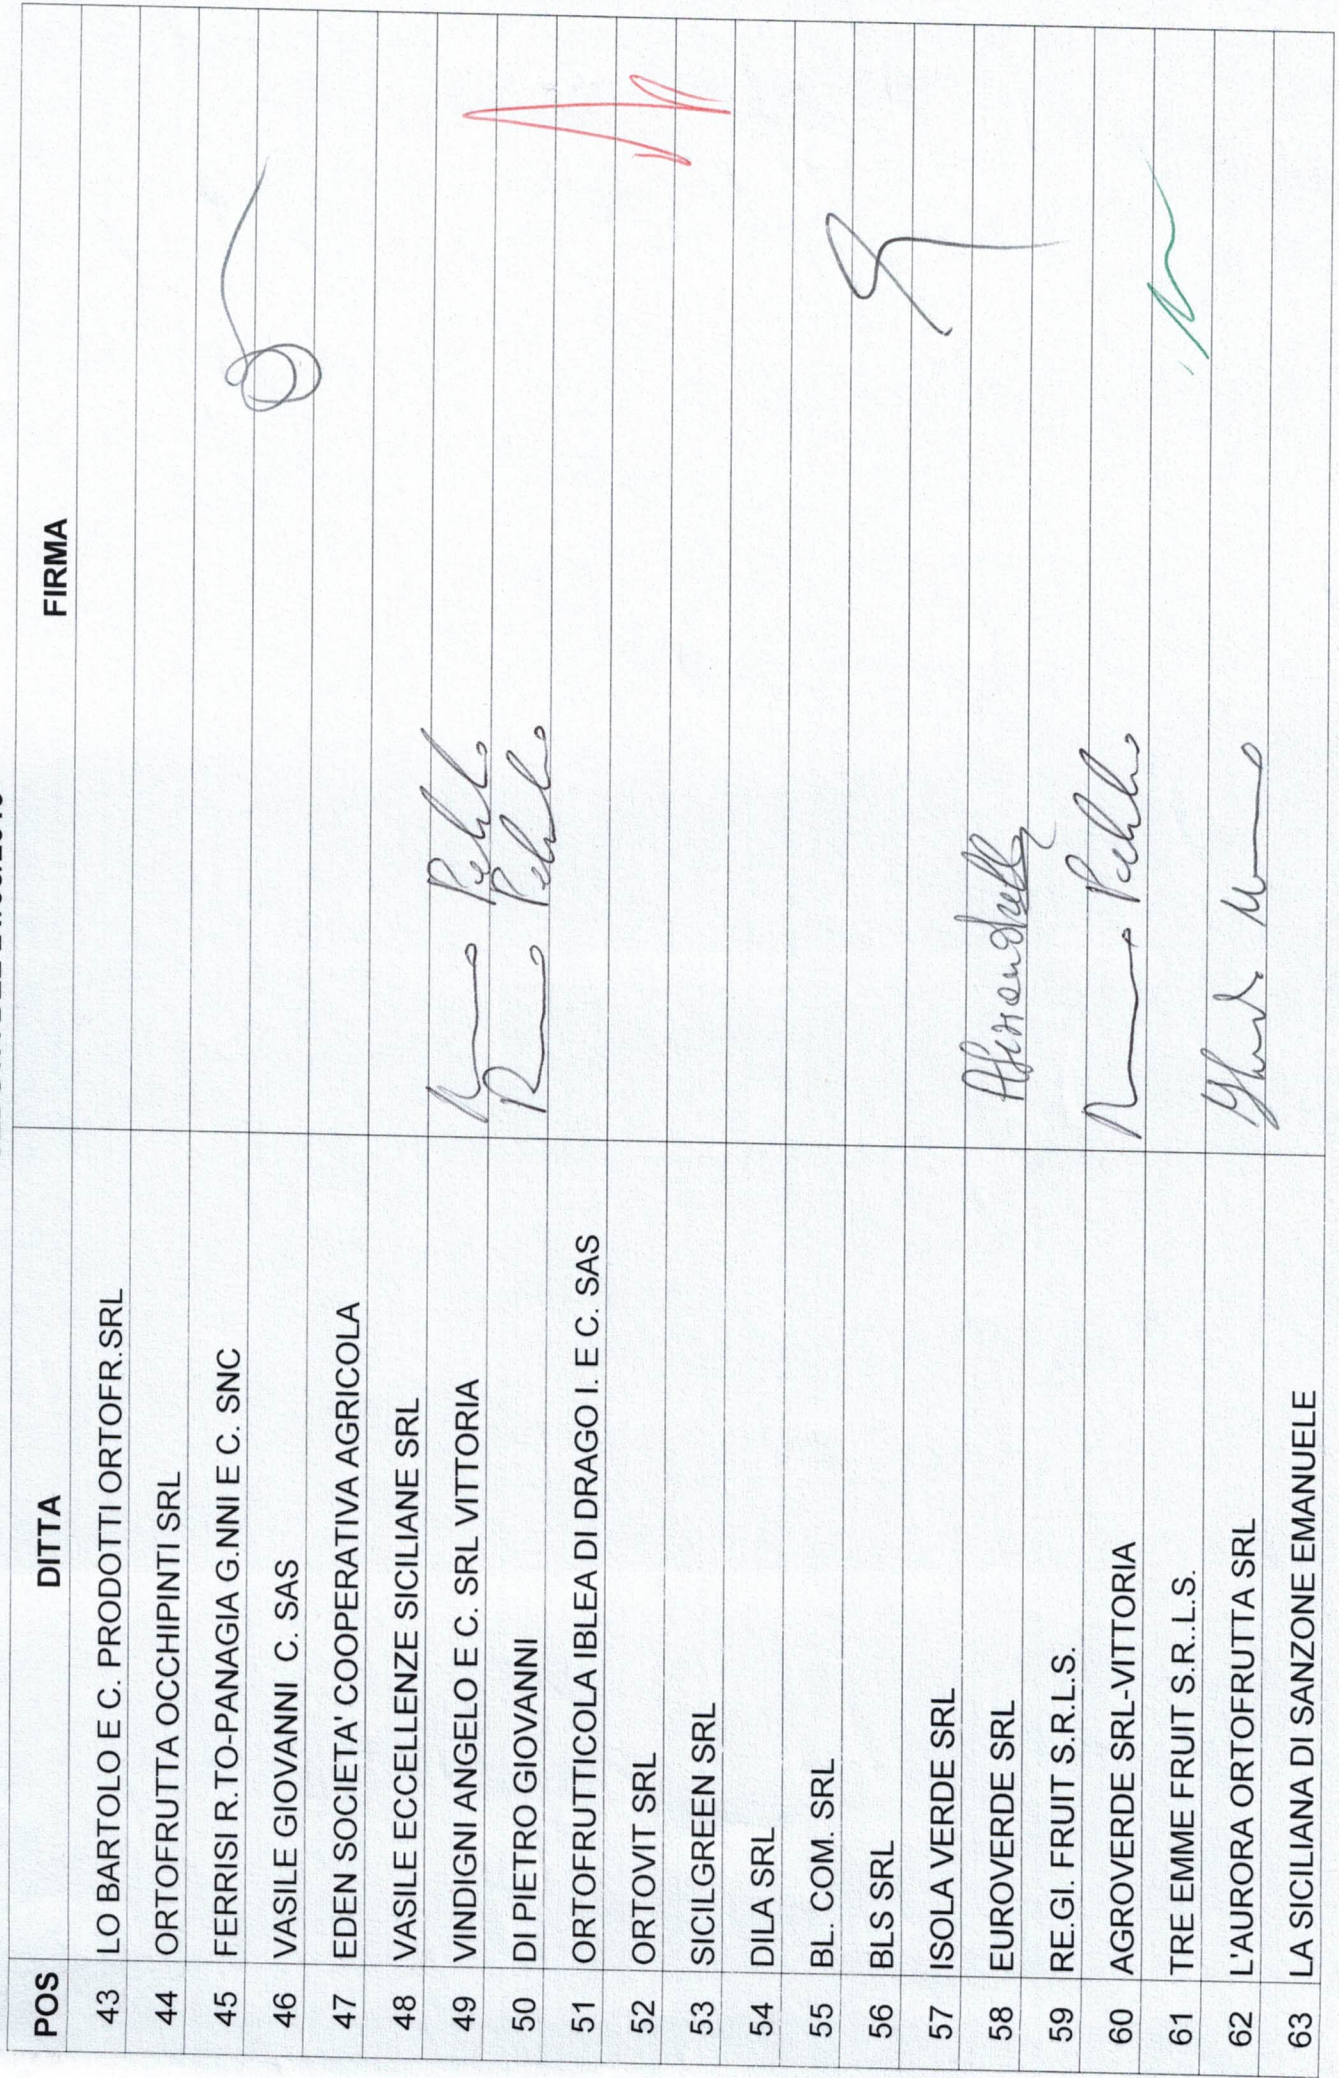 POS DITTA FIRMA
43 LO BARTOLO E C. PRODOTTI ORTOFR.SRL
44 ORTOFRUTTA OCCHIPINTI SRL
45 FERRISI R.TO-PANAGIA G.NNI E C. SNC
46 VASILE GIOVANNI C. SAS
47 EDEN SOCIETA' COOPERATIVA AGRICOLA
48 VASILE ECCELLENZE SICILIANE SRL
49 VINDIGNI ANGELO E C. SRL VITTORIA
50 DI PIETRO GIOVANNI
51 ORTOFRUTTICOLA IBLEA DI DRAGO I. E C. SAS
52 ORTOVIT SRL
53 SICILGREEN SRL
54 DILA SRL
55 BL. COM. SRL
56 BLS SRL
57 ISOLA VERDE SRL
58 EUROVERDE SRL
59 RE.GI. FRUIT S.R.L.S.
60 AGROVERDE SRL-VITTORIA
61 TRE EMME FRUIT S.R..L.S.
62 L'AURORA ORTOFRUTTA SRL
63 LA SICILIANA DI SANZONE EMANUELE